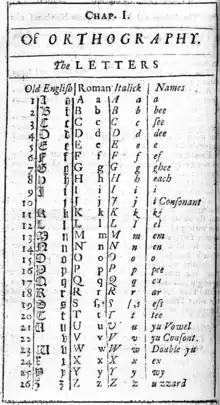 CHAP. I.
Of ORTHOGRAPHY.
The LETTERS
Old English Roman Italick Names
1 A a A a A a a
2 B b B b B b bee
3 C c C c C c ſee
4 D d D d D d dee
5 E e E e E e e
6 F f F f F f ef
7 G g G g G g ghee
8 H h H h H h each
9 I i I i I i i
10 J j J j i Conſonant
11 K k K k K k ka
12 L l L l L l el
13 M m M m M m em
14 N n N n N n en
15 O o O o O o o
16 P p P p P p pee
17 Q q Q q Q q cu
18 R r R r R r ar
19 S s S ſ, s S ſ, s eſs
20 T t T t T t tee
21 U u U u U u yu Vowel
22 v V v V v yu Conſont.
23 W w W w W w Double yu
24 X x X x X x ex
25 Y y Y y Y y wy
26 Z z Z z Z z uzzard